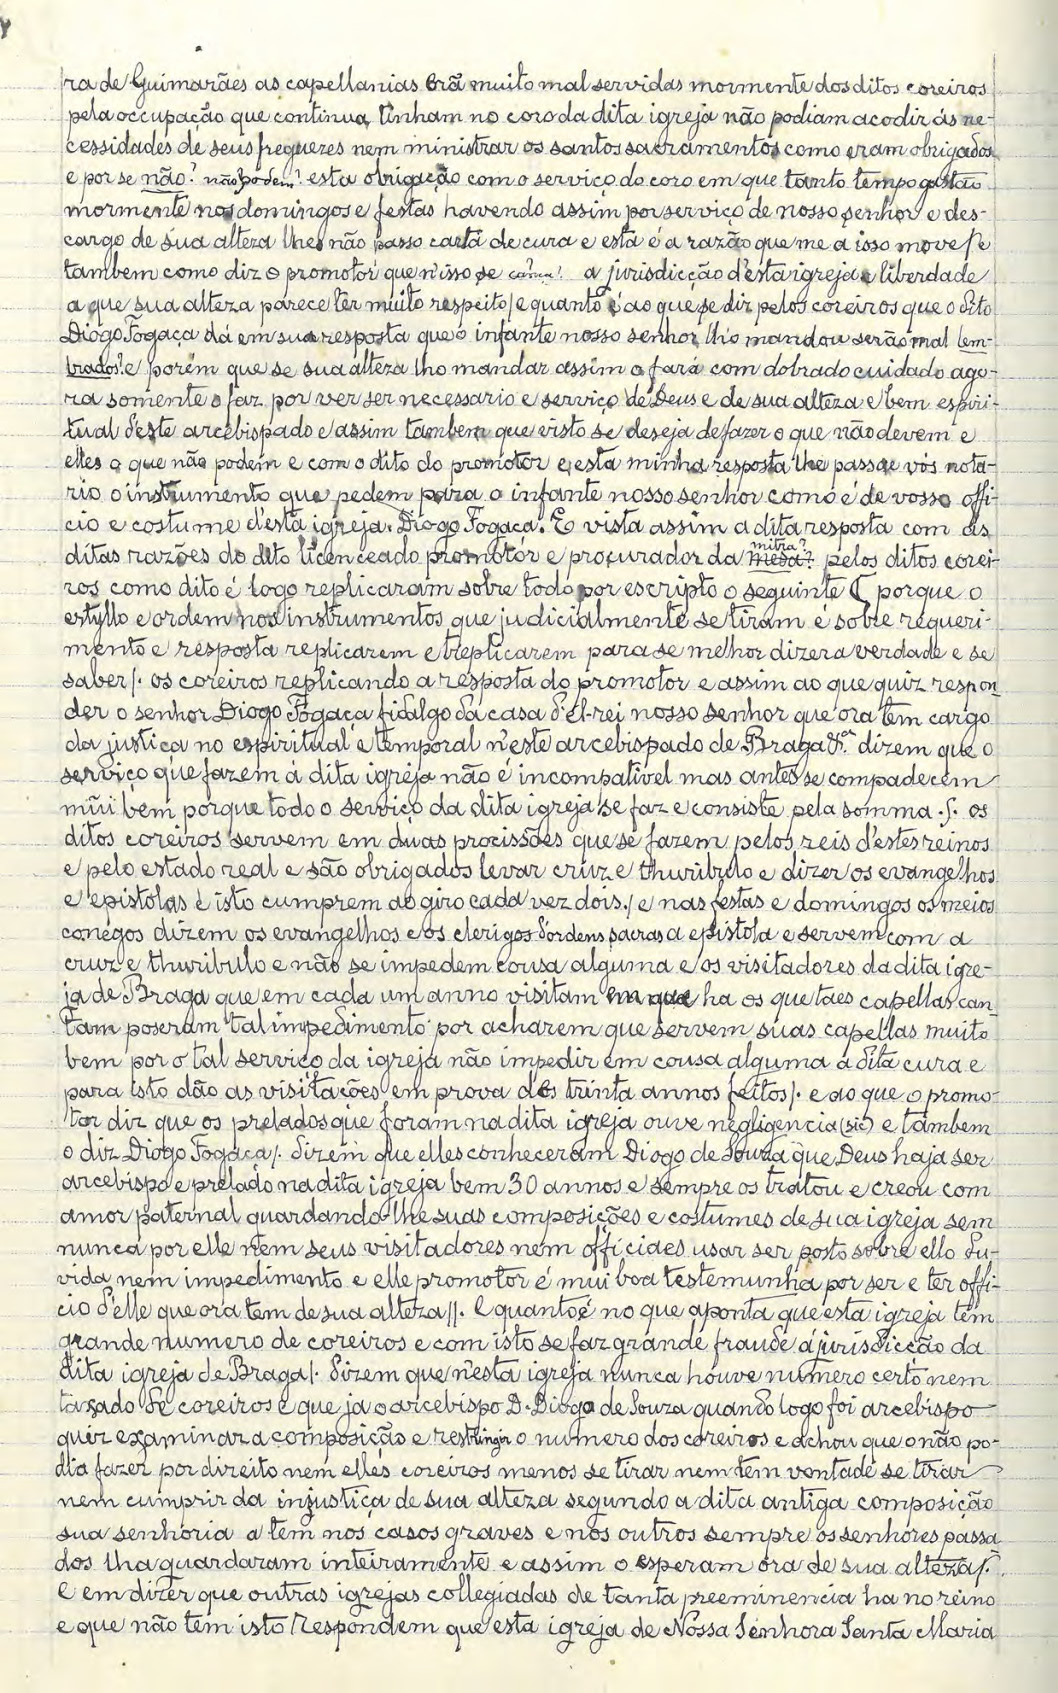 ra de Guimarães as capellanias erã muito mal servidas mormente dos ditos coreiros
pela occupação que continua tinham no coro da dita igreja não podiam acodir ás ne-
cessidades de seus freguezes nem ministrar os santos sacramentos como eram obrigados
e por se não? não podem? esta obrigação com o serviço do coro em que tanto tempo gastão
mormente nos domingos e festas havendo assim por serviço de nosso senhor e des-
cargo de sua alteza lhes não passo carta de cura e esta é a razão que me a isso move se
tambem como diz o promotor que n'isso se a jurisdicção d'esta igreja e liberdade
a que sua alteza parece ter muito respeito / e quanto é ao que se diz pelos coreiros que o dito
Diogo Fogaça dá em sua resposta que o infante nosso senhor lh'o mandou serão mal lem-
brados? e porém que se sua alteza lho mandar assim o fará com dobrado cuidado ago-
ra somente o faz por ver ser necessario e serviço de Deus e de sua alteza e bem espiri-
tual d'este arcebispado e assim tambem que visto se deseja de fazer o que não devem e
elles o que não podem e com o dito do promotor e esta minha resposta lhe passae vós nota-
rio o instrumento que pedem para o infante nosso senhor como é de vosso offi-
cio e costume d'esta igreja. Diogo Fogaça. E vista assim a dita resposta com as
ditas razões do dito licenceado promotor e procurador da mesa? mitra? pelos ditos corei-
ros como dito é logo replicaram sobre todo por escripto o seguinte ₵ porque o
estyllo e ordem nos instrumentos que judicialmente se tiram é sobre requeri-
mento e resposta replicarem e treplicarem para se melhor dizer a verdade e se
saber /. os coreiros replicando a resposta do promotor e assim ao que quiz respon
der o senhor Diogo Fogaça fidalgo da casa d'el-rei nosso senhor que ora tem cargo
da justiça no espiritual e temporal n'este arcebispado de Braga &ª. dizem que o
serviço que fazem á dita igreja não é incompativel mas antes se compadecem
mũi bem porque todo o serviço da dita igreja se faz e consiste pela somma .s. os
ditos coreiros servem em duas procissões que se fazem pelos reis d'estes reinos
e pelo estado real e são obrigados levar cruz e thuribulo e dizer os evangelhos
e epistolas e isto cumprem ao giro cada vez dois. / e nas festas e domingos os meios
conegos dizem os evangelhos e os clerigos d'ordens sacras a epistola e servem com a
cruz e thuribulo e não se impedem cousa alguma e os visitadores da dita igre-
ja de Braga que em cada um anno visitam em que ha os que taes capellas can
tam poseram tal impedimento por acharem que servem suas capellas muito
bem por o tal serviço da igreja não impedir em cousa alguma a dita cura e
para isto dão as visitações em prova dos trinta annos feitos /. e ao que o promo-
tor diz que os prelados que foram na dita igreja ouve negligencia (sic) e tambem
o diz Diogo Fogaça /. dizem que elles conheceram Diogo de Souza que Deus haja ser
arcebispo e prelado na dita igreja bem 30 annos e sempre os tratou e creou com
amor paternal guardando-lhe suas composições e costumes de sua igreja sem
nunca por elle nem seus visitadores nem officiaes usar ser posto sobre ello du-
vida nem impedimento e elle promotor é mui boa testemunha por ser e ter offi-
cio d'elle que ora tem de sua alteza //. E quanto é no que aponta que esta igreja tem
grande numero de coreiros e com isto se faz grande fraude á jurisdicção da
dita igreja de Braga /. dizem que n'esta igreja nunca houve numero certo nem
taxado de coreiros e que ja o arcebispo D. Diogo de Souza quando logo foi arcebispo
quiz examinar a composição e restringir o numero dos coreiros e achou que o não po-
dia fazer por direito nem elles coreiros menos se tirar nem tem vontade se tirar
nem cumprir da injustiça de sua alteza segundo a dita antiga composição
sua senhoria a tem nos casos graves e nos outros sempre os senhores passa
dos lha guardaram inteiramente e assim o esperam ora de sua alteza /.
E em dizer que outras igrejas collegiadas de tanta preeminencia ha no reino
e que não tem isto Respondem que esta igreja de Nossa Senhora Santa Maria